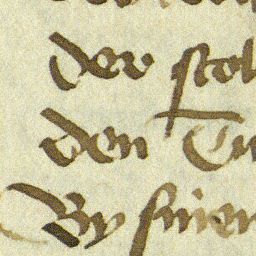 der stol
den Tu
By siner